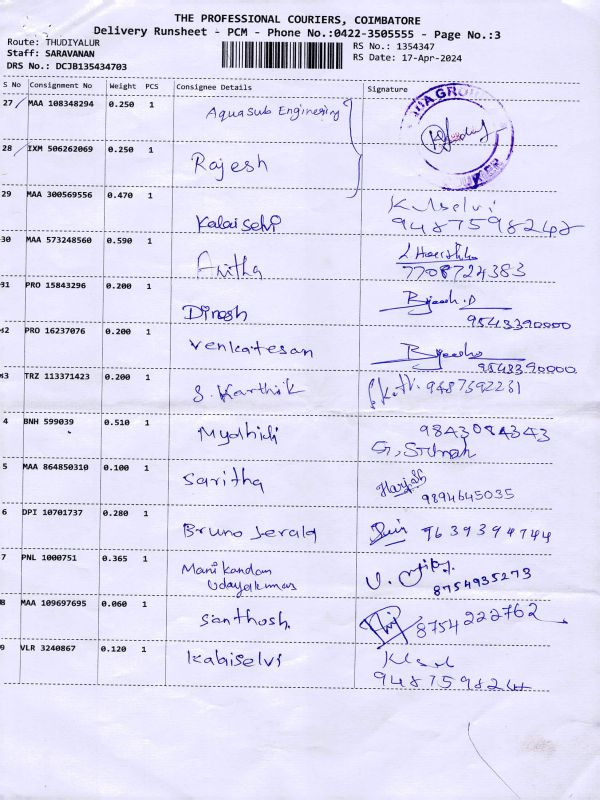 THE PROFESSIONAL COURIERS, COIMBATORE
Delivery Runsheet - PCM - Phone No.:0422-3505555 - Page No.:3
Route: THUDIYALUR
RS No.: 1354347
Staff: SARAVANAN
RS Date: 17-Apr-2024
DRS No.: DCJB135434703
S No Consignment No Weight PCS Consignee Details Signature
27 MAA 108348294 0.250 1 Aquasub Enginering
28 IXM 506262069 0.250 1 Rajesh
29 MAA 300569556 0.470 1 Kalaiselvi
9487598248
30 MAA 573248560 0.590 1 Anitha
7708724383
31 PRO 15843296 0.200 1 Dinesh
9543390000
32 PRO 16237076 0.200 1 Venkatesan
9543390000
33 TRZ 113371423 0.200 1 S. Karthik 9487592231
4 BNH 599039 0.510 1
9843084343
5 MAA 864850310 0.100 1 Saritha
9894645035
6 DPI 10701737 0.280 1 Bruno Jerald 9639394744
7 PNL 1000751 0.365 1 Manikandan
Udayakumar
8754935273
8 MAA 109697695 0.060 1 Santhosh 8754222762
9 VLR 3240867 0.120 1 Kabiselvi
948759824